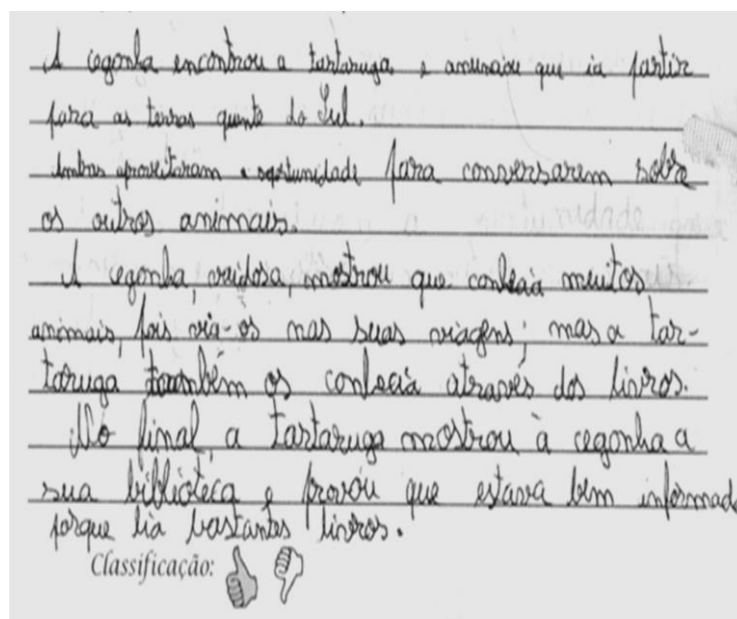 A cegonha encontrou a tartaruga e anunciou que ia partir
para as terras quente do Sul.
Ambas aproveitaram a oportunidade para conversarem sobre
os outros animais.
A cegonha, vaidosa, mostrou que conhecia muitos
animais, pois via-os nas suas viagens; mas a tar-
taruga também os conhecia através dos livros.
No final, a tartaruga mostrou à cegonha a
sua biblioteca e provou que estava bem informada
porque lia bastantes livros.
Classificação: